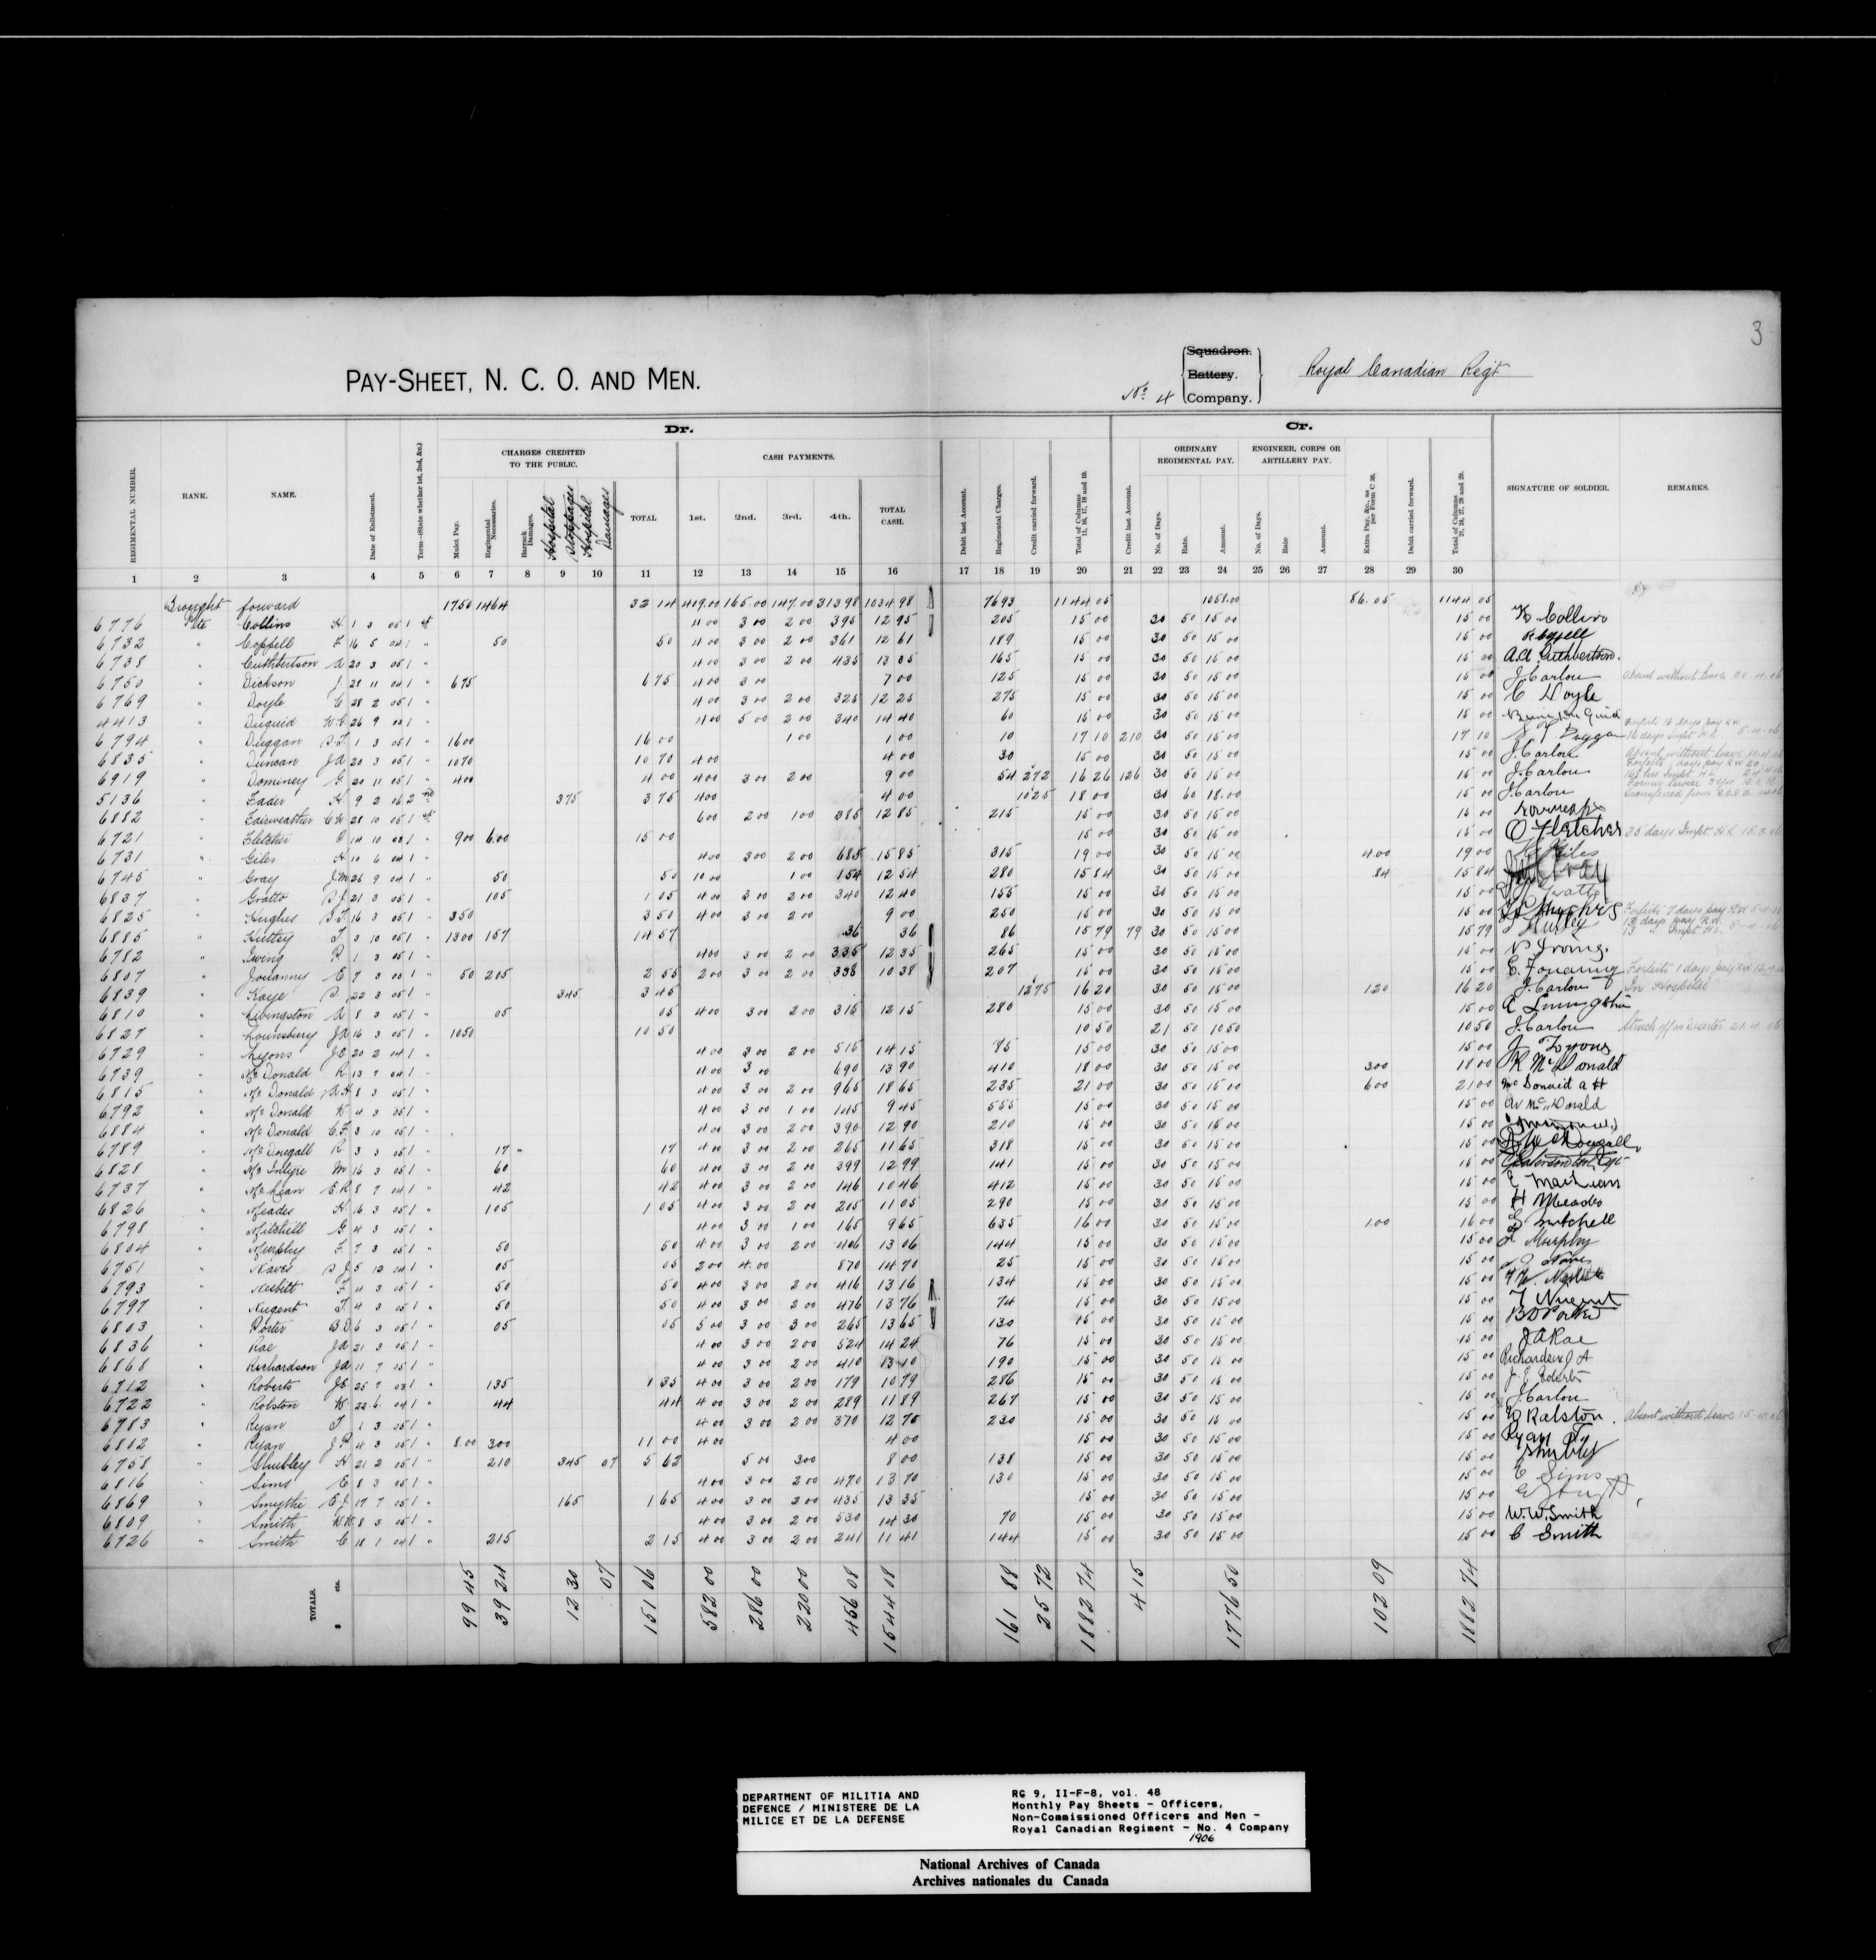 3
PAY-SHEET, N. C. O. AND MEN.
No 4 { Squadron. Battery. Company. } Royal Canadian Regt
Dr. Cr.
CHARGES CREDITED TO THE PUBLIC. CASH PAYMENTS. ORDINARY REGIMENTAL PAY. ENGINEER, CORPS OR ARTILLERY PAY.
REGIMENTAL NUMBER. RANK. NAME. Date of Enlistment. Term—State whether 1st, 2nd, &c.) Mulct Pay. Regimental Necessaries. Barrack Damages. Hospital Stoppages Hospital Damages TOTAL 1st. 2nd. 3rd. 4th. TOTAL CASH. Debit last Account. Regimental Charges. Credit carried forward. Total of Columns 11, 16, 17, 18 and 19. Credit last Account. No. of Days. Rate. Amount. No. of Days. Rate Amount. Extra Pay, &c., as per Form C 38. Debit carried forward. Total of Columns 21, 24, 27, 28 and 29. SIGNATURE OF SOLDIER. REMARKS.
1 2 3 4 5 6 7 8 9 10 11 12 13 14 15 16 17 18 19 20 21 22 23 24 25 26 27 28 29 30
Brought forward 1750 1464 32 14 409.00 165.00 147.00 313 98 1034 98 7693 1144 05 1051.00 86.05 1144 05
6776 Pte Collins H 1 3 05 1 st 4 00 3 00 2 00 395 12 95 205 15 00 30 50 15 00 15 00 H Collins
6732 " Coppell F 16 5 04 1 " 50 50 4 00 3 00 2 00 361 12 61 189 15 00 30 50 15 00 15 00
6738 " Cuthbertson A 20 3 05 1 " 4 00 3 00 2 00 435 13 35 165 15 00 30 50 15 00 15 00 A.A. Cuthbertson.
6750 " Dickson J 28 11 04 1 " 675 6 75 4 00 3 00 7 00 125 15 00 30 50 15 00 15 00 J. Carlou Absent without leave 20.4.06
6769 " Doyle C 28 2 05 1 " 4 00 3 00 2 00 325 12 25 275 15 00 30 50 15 00 15 00 C Doyle
4413 " Duquid W.C 26 9 03 1 " 4 00 5 00 2 00 340 14 40 60 15 00 30 50 15 00 15 00
6794 " Duggan D.J. 1 3 05 1 " 1600 16 00 1 00 1 00 10 17 10 210 30 50 15 00 17 10 Duggan Forfeits 16 days pay R.W 16 days Impt H.L.
6835 " Duncan J.A 20 3 05 1 " 1070 10 70 4 00 4 00 30 15 00 30 50 15 00 15 00 J Carlou Absent without leave 10.4.06
6919 " Dominey G 20 11 05 1 " 400 4 00 4 00 3 00 2 00 9 00 54 272 16 26 126 30 50 15 00 15 00 J. Carlou
5136 " Fader H. 9 2 06 2 nd 375 3 75 4 00 4 00 1025 18 00 30 60 18.00 15 00 J Carlou
6882 " Fairweather C.W 28 10 05 1 st 6 00 2 00 1 00 385 12 85 215 15 00 30 50 15 00 15 00
6721 " Fletcher O 14 10 03 1 " 900 6.00 15 00 15 00 30 50 15 00 15 00 O Fletcher 35 days Impt H.L 15.3.06
6731 " Giles H 10 6 04 1 " 4 00 3 00 2 00 685 15 85 315 19 00 30 50 15 00 4.00 19 00 Giles
6745 " Gray J.M 26 9 04 1 " 50 50 10 00 1 00 154 12 54 280 15 84 30 50 15 00 84 15 84
6837 " Gratto D.J 21 3 05 1 " 105 1 05 4 00 3 00 2 00 340 12 40 155 15 00 30 50 15 00 15 00
6825 " Hughes D.T. 16 3 05 1 " 350 3 50 4 00 3 00 2 00 9 00 250 15 00 30 50 15 00 15 00 Hughes Forfeits 7 days pay R.W
6885 " Hurley T. 3 10 05 1 " 1300 157 14 57 36 36 86 15 79 79 30 50 15 00 15 79 Hurley 13 days pay R.W.
6782 " Irving P. 1 3 05 1 " 4 00 3 00 2 00 335 12 35 265 15 00 30 50 15 00 15 00 Irving.
6807 " Jouanny E 7 3 05 1 " 50 205 2 55 2 00 3 00 2 00 338 10 38 207 15 00 30 50 15 00 15 00 E. Jouanny Forfeits 1 days pay
6839 " Kaye D. 22 3 05 1 " 345 3 45 1275 16 20 30 50 15 00 120 16 20 J. Carlou In Hospital
6810 " Livingston A 8 3 05 1 " 05 05 4 00 3 00 2 00 315 12 15 280 15 00 30 50 15 00 15 00 A Livingston
6827 " Lounsbury J.A 16 3 05 1 " 1050 10 50 10 50 21 50 10 50 10 50 J. Carlou Struck off as Deserter 21.4.06
6729 " Lyons J.E 20 2 04 1 " 4 00 3 00 2 00 515 14 15 85 15 00 30 50 15 00 15 00 J Lyons
6739 " McDonald R 13 7 04 1 " 4 00 3 00 690 13 90 410 18 00 30 50 15 00 300 18 00 R McDonald
6815 " McDonald A.H 8 3 05 1 " 4 00 3 00 2 00 965 18 65 235 21 00 30 50 15 00 600 21 00 McDonald A H
6792 " McDonald W 4 3 05 1 " 4 00 3 00 1 00 145 9 45 555 15 00 30 50 15 00 15 00 W McDonald
6884 " McDonald C.F. 3 10 05 1 " 4 00 3 00 2 00 390 12 90 210 15 00 30 50 15 00 15 00
6789 " McDougall R 3 3 05 1 " 17 17 4 00 3 00 2 00 265 11 65 318 15 00 30 50 15 00 15 00 McDougall
6828 " McIntyre M 16 3 05 1 " 60 60 4 00 3 00 2 00 399 12 99 141 15 00 30 50 15 00 15 00
6737 " McLean E.R 8 7 04 1 " 42 42 4 00 3 00 2 00 146 10 46 412 15 00 30 50 15 00 15 00 E MacLean
6826 " Meades H. 16 3 05 1 " 105 1 05 4 00 3 00 2 00 205 11 05 290 15 00 30 50 15 00 15 00 H Meades
6798 " Mitchell G 4 3 05 1 " 4 00 3 00 1 00 165 9 65 635 16 00 30 50 15 00 1.00 16 00 G Mitchell
6804 " Murphy F. 7 3 05 1 " 50 50 4 00 3 00 2 00 406 13 06 144 15 00 30 50 15 00 15 00 F Murphy
6751 " Naves D.J 5 12 04 1 " 05 05 2 00 4.00 870 14 70 25 15 00 30 50 15 00 15 00
6793 " Nesbitt F. 4 3 05 1 " 50 50 4 00 3 00 2 00 416 13 16 134 15 00 30 50 15 00 15 00
6797 " Nugent T. 4 3 05 1 " 50 50 4 00 3 00 2 00 476 13 76 74 15 00 30 50 15 00 15 00 T Nugent
6803 " Porter B.D 6 3 05 1 " 05 05 5 00 3 00 3 00 265 13 65 130 15 00 30 50 15 00 15 00 B D Porter
6836 " Rae J.A 21 3 05 1 " 4 00 3 00 2 00 524 14 24 76 15 00 30 50 15 00 15 00 J A Rae
6868 " Richardson J.A 11 7 05 1 " 4 00 3 00 2 00 410 13 10 190 15 00 30 50 15 00 15 00 Richardson J A
6712 " Roberts J.E 25 7 03 1 " 135 1 35 4 00 3 00 2 00 179 10 79 286 15 00 30 50 15 00 15 00
6722 " Rolston W. 22 6 04 1 " 44 44 4 00 3 00 2 00 289 11 89 267 15 00 30 50 15 00 15 00 J. Carlou
6783 " Ryan T 1 3 05 1 " 4 00 3 00 2 00 370 12 70 230 15 00 30 50 15 00 15 00 W Ralston. Absent without leave 15.4.06
6802 " Ryan J.P. 4 3 05 1 " 8.00 300 11 00 4 00 4 00 15 00 30 50 15 00 15 00 Ryan T
6758 " Shubley H. 21 2 05 1 " 210 345 07 5 62 5 00 3 00 8 00 138 15 00 30 50 15 00 15 00 Shubley
6816 " Sims E 8 3 05 1 " 4 00 3 00 2 00 470 13 70 130 15 00 30 50 15 00 15 00 E Sims
6869 " Smythe E.J. 17 7 05 1 " 165 1 65 4 00 3 00 2 00 435 13 35 15 00 30 50 15 00 15 00
6809 " Smith W.W. 8 3 05 1 " 4 00 3 00 2 00 530 14 30 70 15 00 30 50 15 00 15 00 W. W. Smith
6726 " Smith C 18 1 04 1 " 215 2 15 4 00 3 00 2 00 241 11 41 144 15 00 30 50 15 00 15 00 C Smith
TOTALS. $ cts. 99 45 39 24 12 30 07 151 06 582 00 286 00 220 00 456 08 1544 08 161 88 25 72 1882 74 4 15 1776 50 102 09 1882 74
DEPARTMENT OF MILITIA AND
DEFENCE / MINISTERE DE LA
MILICE ET DE LA DEFENSE
RG 9, II-F-8, vol. 48
Monthly Pay Sheets - Officers,
Non-Commissioned Officers and Men -
Royal Canadian Regiment - No. 4 Company
1906
National Archives of Canada
Archives nationales du Canada